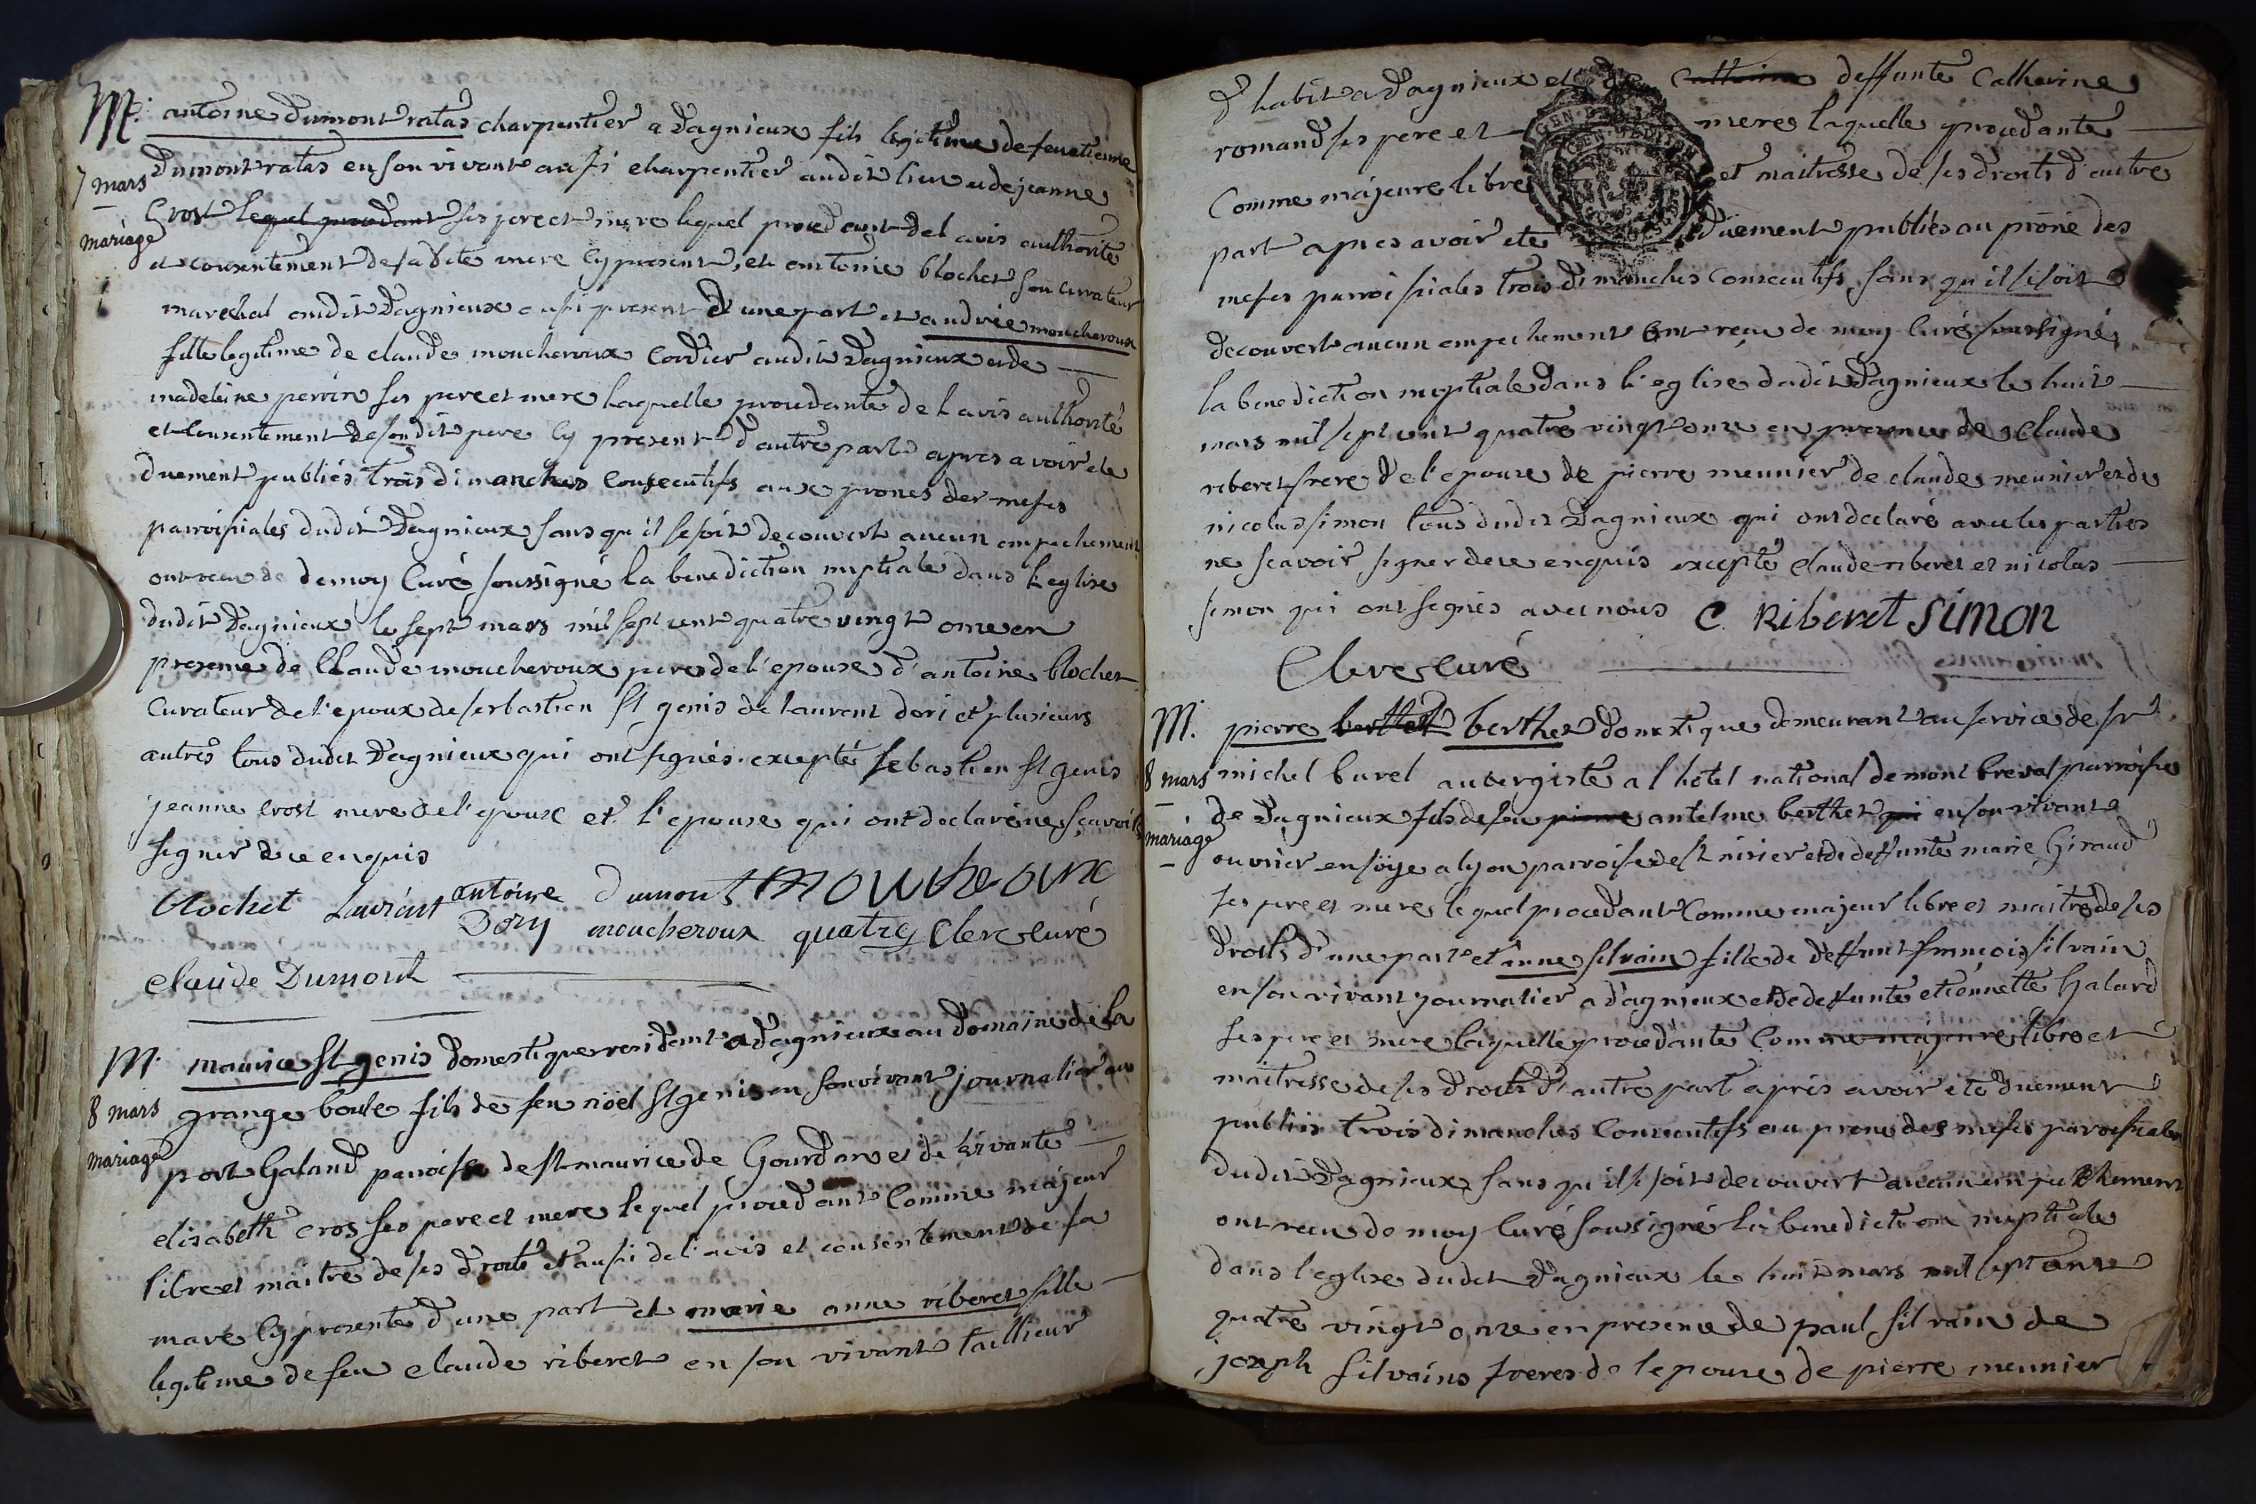 M. antoine dumont ratas charpentier a dagnieux fils legitime de feu etienne
7 mars
mariage
dumont ratas en son vivant aussi charpentier audit lieu et de jeanne
Crost lequel procedant ses pere et mere lequel procedant de l avis authorité
et consentement de sa dite mere cy presente, et antoine blochet son curateur
marechal audit dagnieux aussi present d une part et andrée moucheroux
fille legitime de claude moucheroux Cordier audit dagnieux et de
madeleine perrin ses pere et mere laquelle procedante de l avis authorité
et consentement de son dit pere cy present d autre part apres avoir eté
duement publiés trois dimanches consecutifs aux prones des messes
parroissiales dudit dagnieux sans qu il se soit decouvert aucun empechement
ont recu de de moy Curé soussigné la benediction nuptiale dans l eglise
dudit dagnieux le sept mars mil sept cent quatre vingt onze en
presence de Claude moucheroux pere de l'epouse d'antoine blochet
Curateur de l'epoux de serbastien st genis de laurent dori et plusieurs
autres tous dudit dagnieux qui ont signés excepté sebastien st genis
jeanne crost mere de l'epoux et l'epouse qui ont declaré ne sçavoir
signer de ce enquis
blochet Laurent antoine dumont moucheroux
Dory moucheroux quatre Clerc curé
claude Dumont
M. maurice st genis domestique residant a dagnieux au domaine de la
8 mars
mariage
grange boule fils de feu noel st genis en son vivant journalier au
port Galand parroisse de st maurice de Gourdans et de vivante
elisabeth cros ses pere et mere lequel procedant Comme majeur
libre et maitre de ses droits et aussi de l'avis et consentement de sa
mere cy presente d une part et marie anne riberet fille
legitime de feu claude riberet en son vivant tailleur
d habit a dagnieux et de Catherine deffunte Catherine
romand ses pere et mere laquelle procedante
GEN
Comme majeure libre et maitresse de ses droits d'autre
part apres avoir eté duement publiés au prône des
messes parroissiales trois dimanches consecutifs sans qu il se soit
decouvert aucun empechement ont reçu de moy Curé soussigné
la benediction nuptiale dans l'eglise dudit dagnieux le huit
mars mil sept cent quatre vingt onze en presence de claude
riberet frere de l'epouse de pierre meunier de claude meunier et de
nicolas simon tous dudit dagnieux qui ont declaré avec les parties
ne scavoir signer de ce enquis excepté claude riberet et nicolas
simon qui ont signés avec nous C. Riberet Simon
Clerc curé
M. pierre berthet berthet domestique demeurant au service de sr
8 mars
mariage
michel burel aubergiste a l hotel national de mont breval parroisse
de dagnieux fils de feu pierre antelme berthet qui en son vivant
ouvrier en soye a lyon parroisse de st nizier et de deffunte marie Giraud
ses pere et mere lequel procedant Comme majeur libre et maitre de ses
droits d'une part et anne silvain fille de deffunt francois silvain
en son vivant journalier a dagnieux et de deffunte etiennette Galard
ses pere et mere laquelle procedante Comme majeure libre et
maitresse de ses droits d'autre part aprés avoir eté duement
publiés trois dimanches Consecutifs au prone des messes paroissiales
dudit dagnieux sans qu il se soit decouvert aucun empechement
ont recu de moy Curé soussigné la benediction nuptiale
dans l'eglise dudit dagnieux le huit mars mil sept cent
quatre vingt onze en presence de paul silvain de
joseph silvains freres de l epouse de pierre meunier